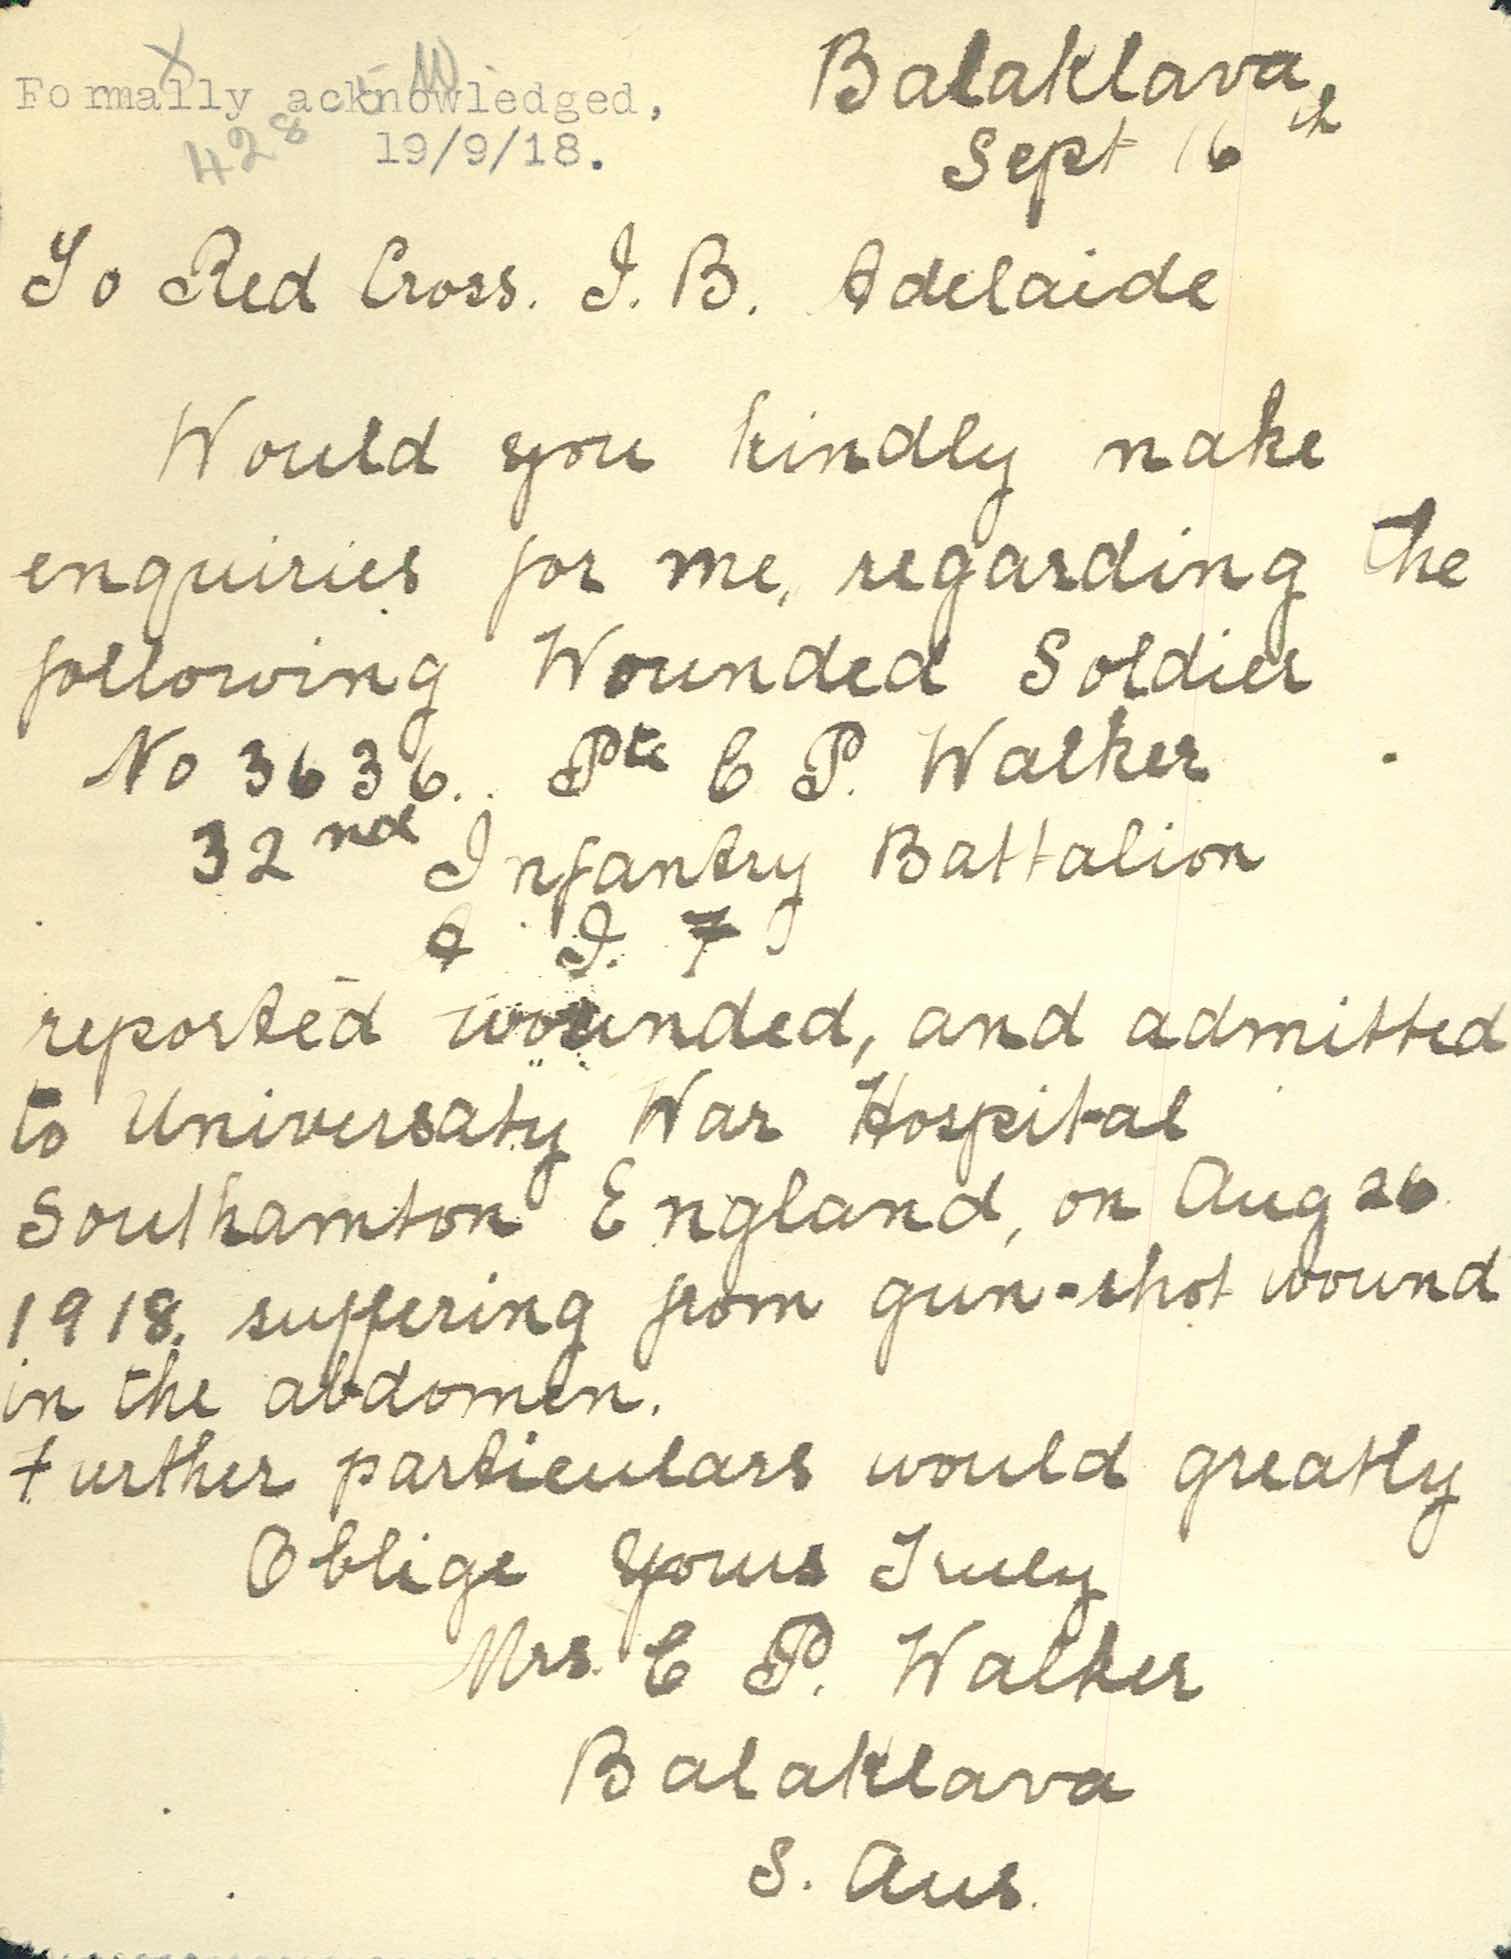 Formally acknowledged,
19/9/18.
428
Balaklava,
Sept 16th
To Red Cross. I. B. Adelaide
Would you kindly make
enquiries for me, regarding the
following Wounded Soldier
No 3636.. Pte C P. Walker
32nd Infantry Battalion
A I. F
reported wounded, and admitted
to Universaty War Hospital
Southamton England, on Aug 26
1918. suffering from gun-shot wound
in the abdomen.
Further particulars would greatly
Oblige Yours Truly
Mrs. C P. Walker
Balaklava
S. Aus.